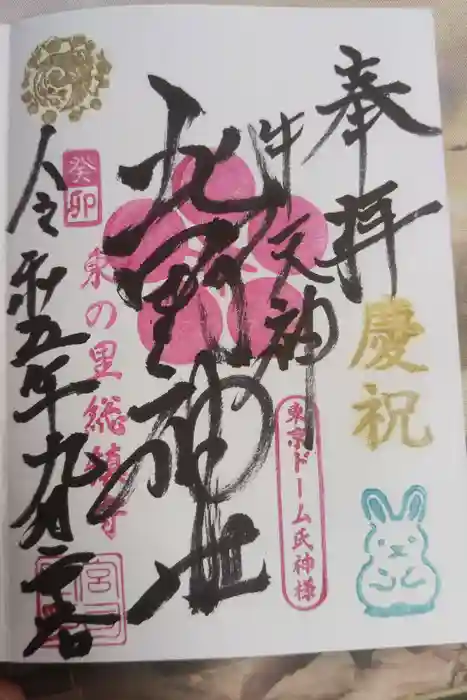 奉拝
慶祝
牛天神
東京ドーム氏神様
北野神社
癸卯
東の里総鎮守
令和五年九月